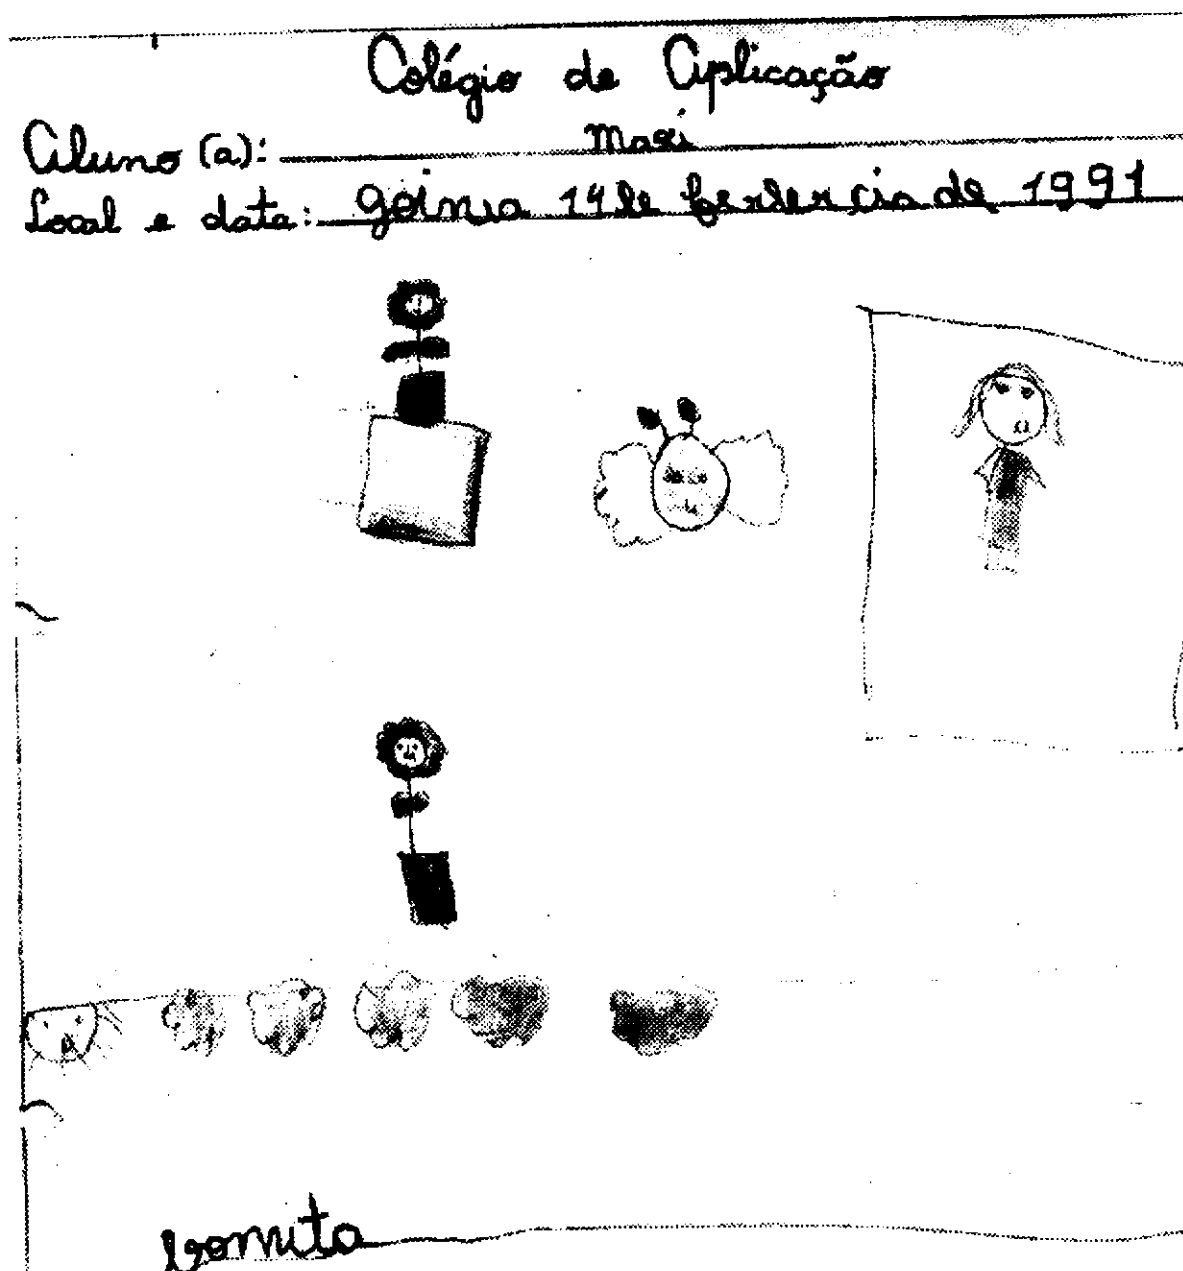 Colégio de Aplicação
Aluno (a): Mari
Local e data: goinia 14 de de 1991
bomita